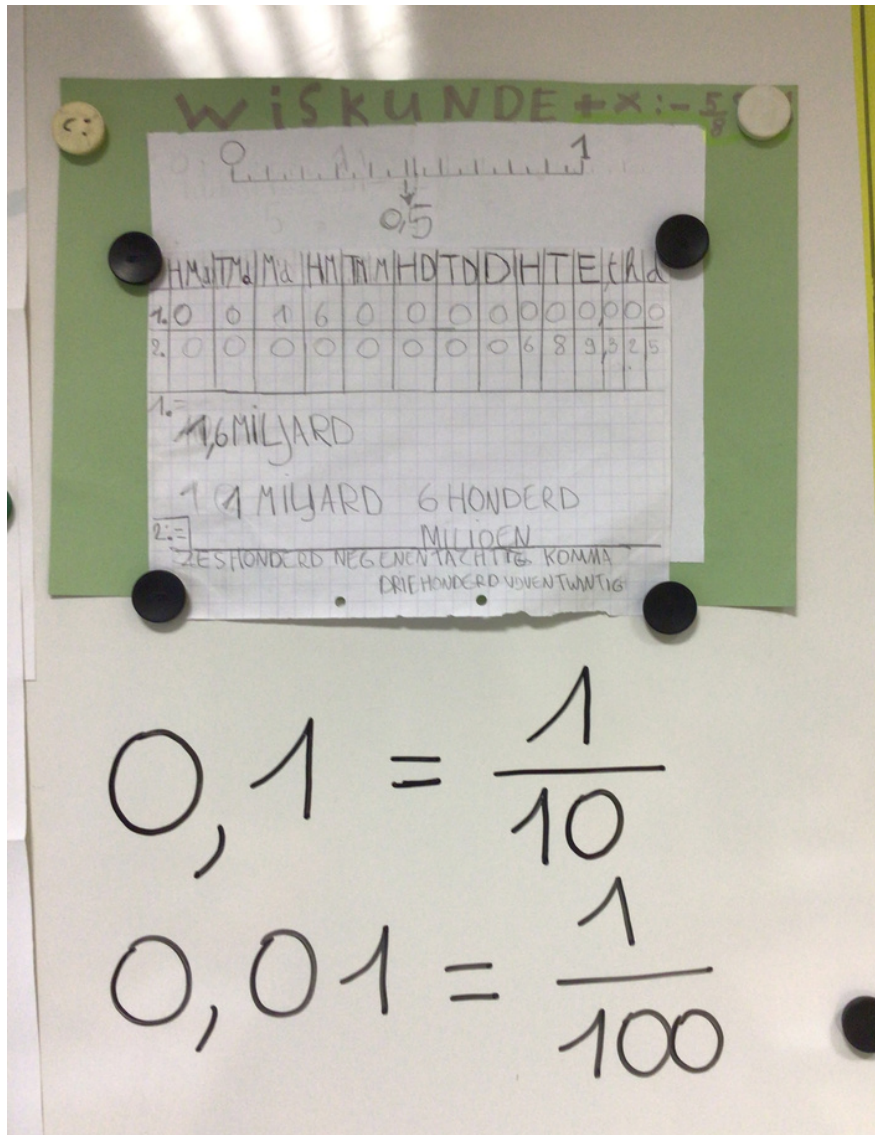 WiSKUNDE + × : - 5/8
0 1
0,5
HMd TMd Md HM TM M HD TD D H T E, t h d
1. 0 0 1 6 0 0 0 0 0 0 0 0, 0 0 0
2. 0 0 0 0 0 0 0 0 6 8 9, 3 2 5
1.=
1,6 MiLJARD
1 MILJARD 6 HONDERD
MILJOEN
2.=
ZESHONDERD NEGENENTACHTIG KOMMA
DRIEHONDERD VIJVENTWINTIG
0,1 = 1/10
0,01 = 1/100